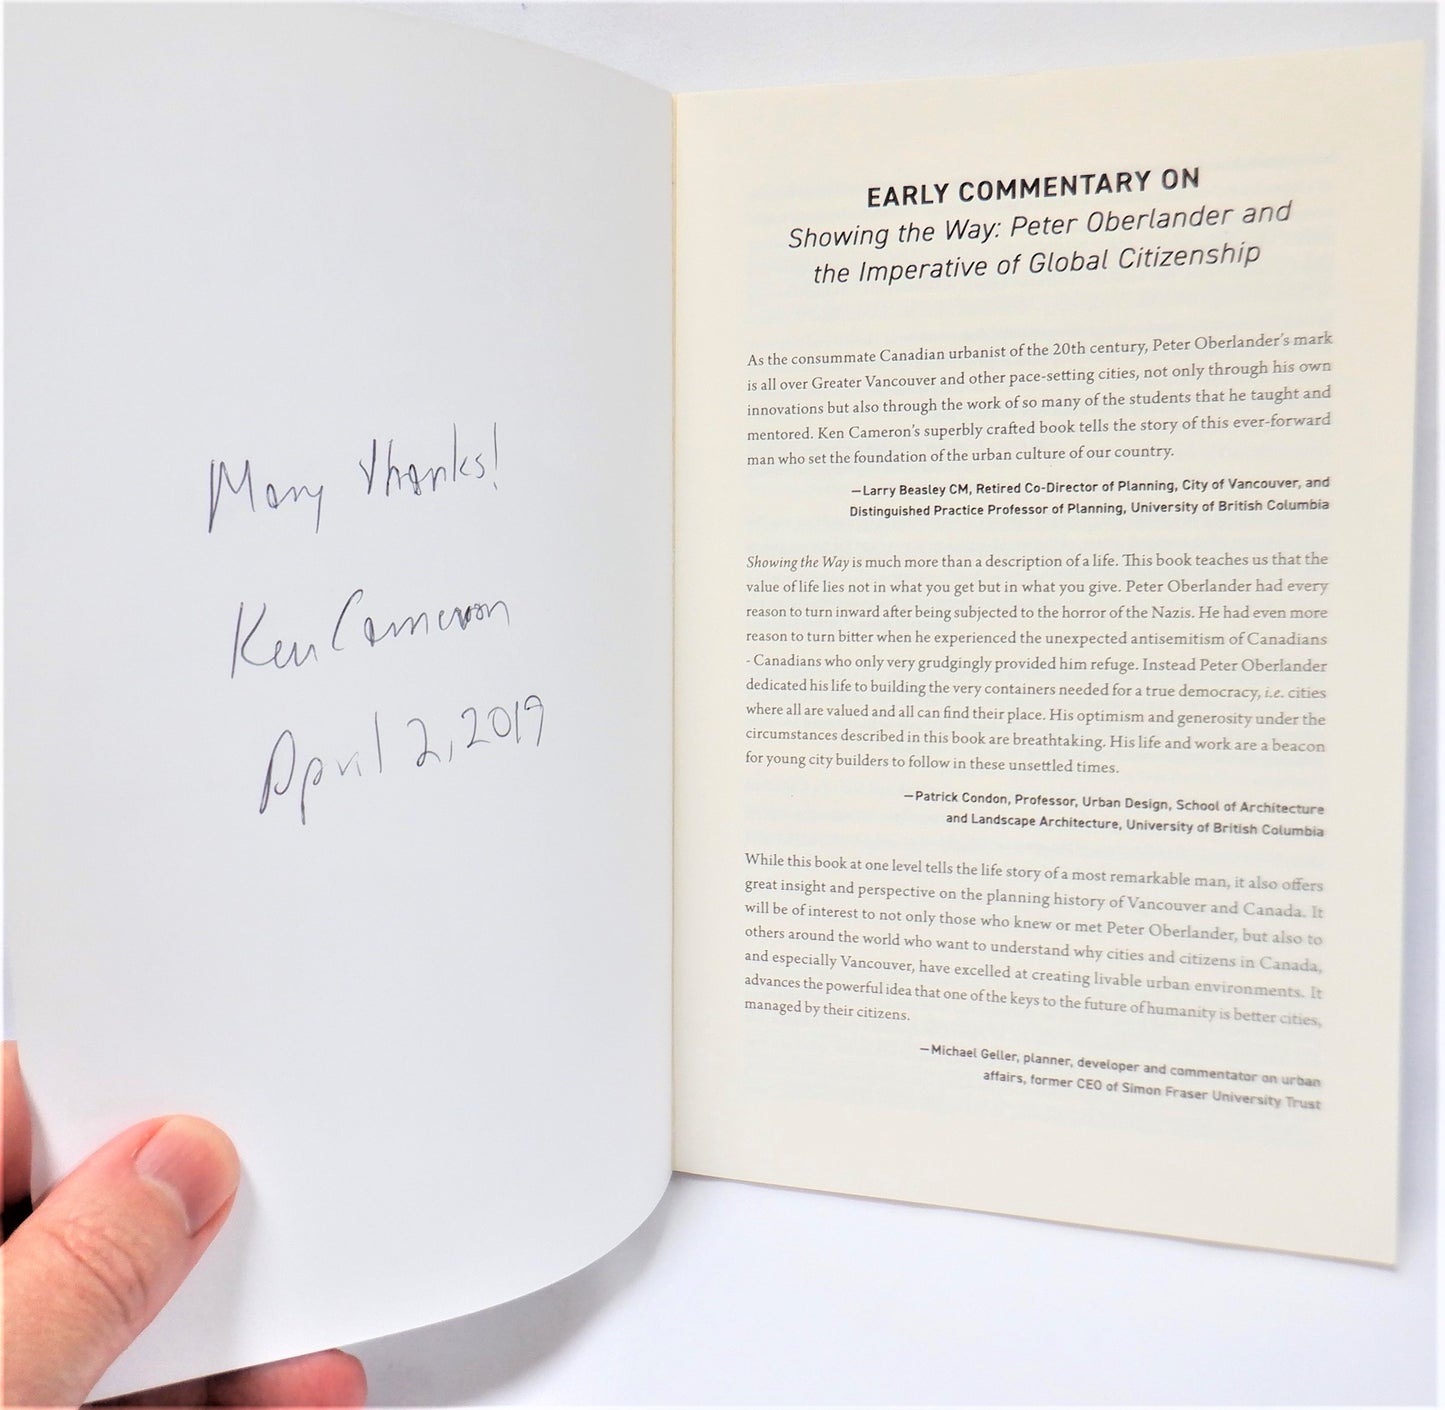 Many thanks!
Ken Cameron
April 2, 2019
EARLY COMMENTARY ON
Showing the Way: Peter Oberlander and
the Imperative of Global Citizenship
As the consummate Canadian urbanist of the 20th century, Peter Oberlander's mark
is all over Greater Vancouver and other pace-setting cities, not only through his own
innovations but also through the work of so many of the students that he taught and
mentored. Ken Cameron's superbly crafted book tells the story of this ever-forward
man who set the foundation of the urban culture of our country.
—Larry Beasley CM, Retired Co-Director of Planning, City of Vancouver, and
Distinguished Practice Professor of Planning, University of British Columbia
Showing the Way is much more than a description of a life. This book teaches us that the
value of life lies not in what you get but in what you give. Peter Oberlander had every
reason to turn inward after being subjected to the horror of the Nazis. He had even more
reason to turn bitter when he experienced the unexpected antisemitism of Canadians
- Canadians who only very grudgingly provided him refuge. Instead Peter Oberlander
dedicated his life to building the very containers needed for a true democracy, i.e. cities
where all are valued and all can find their place. His optimism and generosity under the
circumstances described in this book are breathtaking. His life and work are a beacon
for young city builders to follow in these unsettled times.
—Patrick Condon, Professor, Urban Design, School of Architecture
and Landscape Architecture, University of British Columbia
While this book at one level tells the life story of a most remarkable man, it also offers
great insight and perspective on the planning history of Vancouver and Canada. It
will be of interest to not only those who knew or met Peter Oberlander, but also to
others around the world who want to understand why cities and citizens in Canada,
and especially Vancouver, have excelled at creating livable urban environments. It
advances the powerful idea that one of the keys to the future of humanity is better cities,
managed by their citizens.
—Michael Geller, planner, developer and commentator on urban
affairs, former CEO of Simon Fraser University Trust